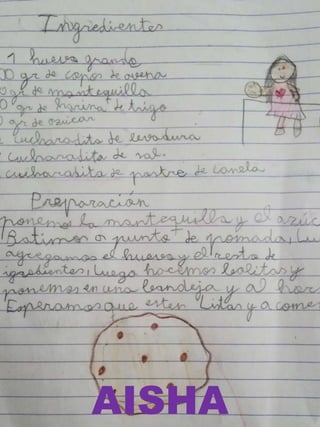 Ingredientes
1 huevo grande
00 gr de copos de avena
0 gr de mantequilla
0 gr de harina de trigo
0 gr de azúcar
cucharadita de levadura
cucharadita de sal.
cucharadita de postre de canela
Preparación
ponemos la mantequilla y el azúc
Batimos a punto de pomada, Lu
agregamos el huevo y el resto de
igredientes, Luego hacemos bolitas y
ponemos en una bandeja y al hor
Esperamos que esten Listas y a comer
AISHA